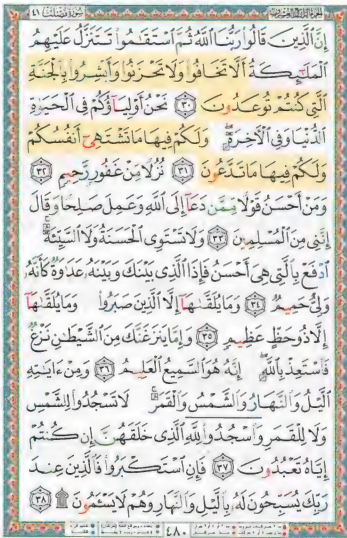 الجزء الرابع والعشرون سورة فصلت ٤١
إِنَّ ٱلَّذِينَ قَالُوا۟ رَبُّنَا ٱللَّهُ ثُمَّ ٱسْتَقَٰمُوا۟ تَتَنَزَّلُ عَلَيْهِمُ
ٱلْمَلَٰٓئِكَةُ أَلَّا تَخَافُوا۟ وَلَا تَحْزَنُوا۟ وَأَبْشِرُوا۟ بِٱلْجَنَّةِ
ٱلَّتِى كُنتُمْ تُوعَدُونَ ٣٠ نَحْنُ أَوْلِيَآؤُكُمْ فِى ٱلْحَيَوٰةِ
ٱلدُّنْيَا وَفِى ٱلْءَاخِرَةِ ۖ وَلَكُمْ فِيهَا مَا تَشْتَهِىٓ أَنفُسُكُمْ
وَلَكُمْ فِيهَا مَا تَدَّعُونَ ٣١ نُزُلًا مِّنْ غَفُورٍ رَّحِيمٍ ٣٢
وَمَنْ أَحْسَنُ قَوْلًا مِّمَّن دَعَآ إِلَى ٱللَّهِ وَعَمِلَ صَٰلِحًا وَقَالَ
إِنَّنِى مِنَ ٱلْمُسْلِمِينَ ٣٣ وَلَا تَسْتَوِى ٱلْحَسَنَةُ وَلَا ٱلسَّيِّئَةُ ۚ
ٱدْفَعْ بِٱلَّتِى هِىَ أَحْسَنُ فَإِذَا ٱلَّذِى بَيْنَكَ وَبَيْنَهُۥ عَدَٰوَةٌ كَأَنَّهُۥ
وَلِىٌّ حَمِيمٌ ٣٤ وَمَا يُلَقَّىٰهَآ إِلَّا ٱلَّذِينَ صَبَرُوا۟ وَمَا يُلَقَّىٰهَآ
إِلَّا ذُو حَظٍّ عَظِيمٍ ٣٥ وَإِمَّا يَنزَغَنَّكَ مِنَ ٱلشَّيْطَٰنِ نَزْغٌ
فَٱسْتَعِذْ بِٱللَّهِ ۖ إِنَّهُۥ هُوَ ٱلسَّمِيعُ ٱلْعَلِيمُ ٣٦ وَمِنْ ءَايَٰتِهِ
ٱلَّيْلُ وَٱلنَّهَارُ وَٱلشَّمْسُ وَٱلْقَمَرُ ۚ لَا تَسْجُدُوا۟ لِلشَّمْسِ
وَلَا لِلْقَمَرِ وَٱسْجُدُوا۟ لِلَّهِ ٱلَّذِى خَلَقَهُنَّ إِن كُنتُمْ
إِيَّاهُ تَعْبُدُونَ ٣٧ فَإِنِ ٱسْتَكْبَرُوا۟ فَٱلَّذِينَ عِندَ
رَبِّكَ يُسَبِّحُونَ لَهُۥ بِٱلَّيْلِ وَٱلنَّهَارِ وَهُمْ لَا يَسْـَٔمُونَ ۩ ٣٨
٤٨٠